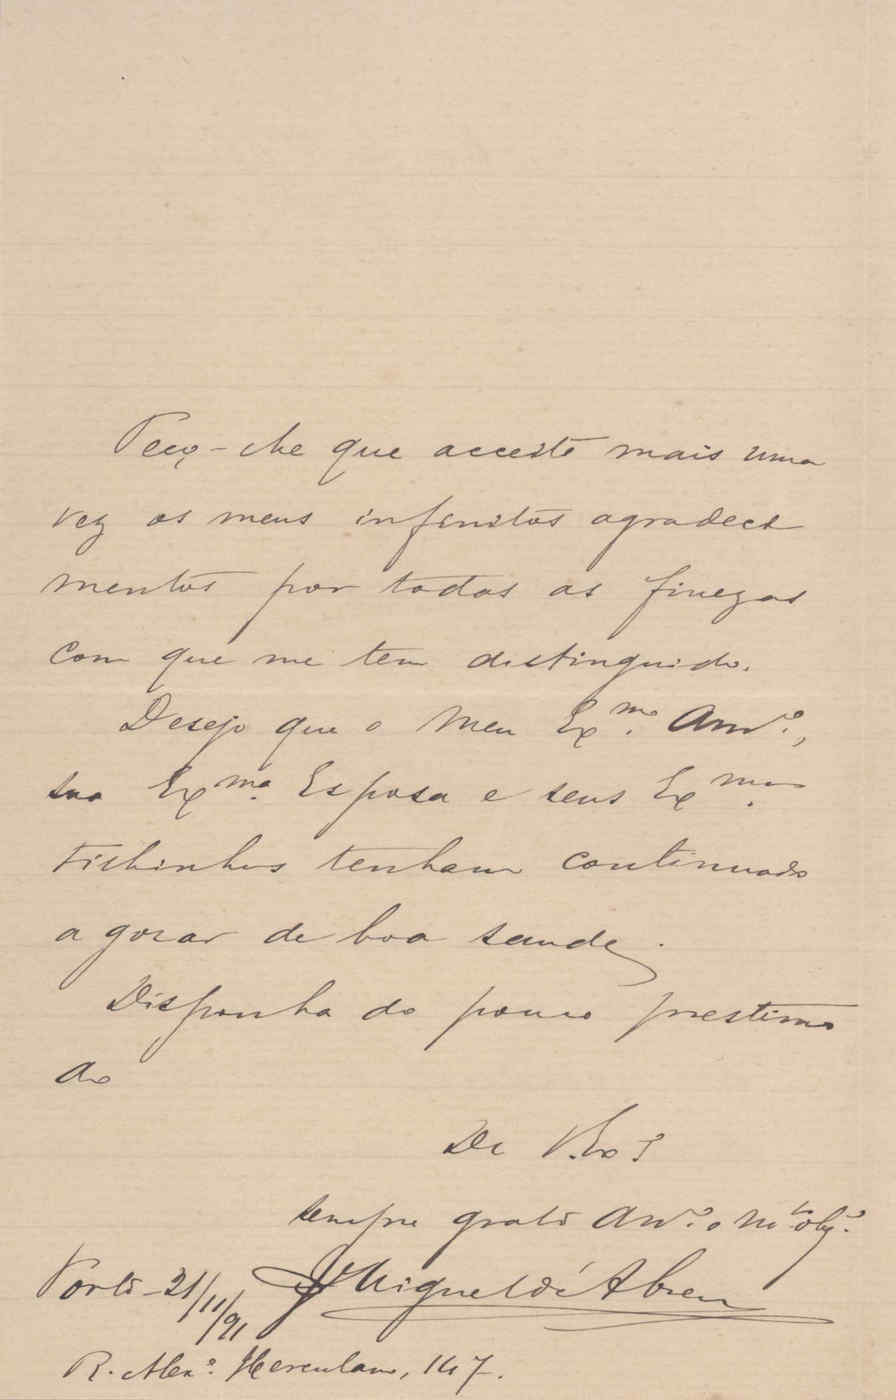 Peço-lhe que acceite mais uma
vez os meus infinitos agradeci
mentos por todas as finezas
com que me tem distinguido.
Desejo que o Meu Ex.mo Am.o,
sua Ex.ma Esposa e seus Ex.mos
Filhinhos tenham continuado
a gozar de boa saude.
Disponha do pouco prestimo
do
De V. Ex.a
sempre grato Am.o e m.to obg.o
Porto - 21/11/91 Miguel d'Abreu
R. Alex.e Herculano, 147.